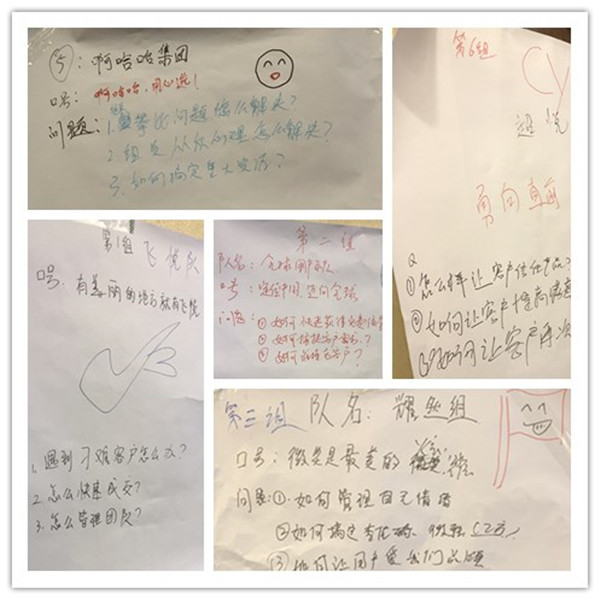 ⑤：啊哈哈集团
口号：啊哈哈，用心造！
问题：1.攀比问题怎么解决？
2.组员从众心理怎么解决？
3.如何搞定
第6组
CY
超悦
勇向直前
Q
①怎么样让客户信任产品？
②如何让客户提高满意
③如何让客户再次
第1组 飞悦队
口号：有美丽的地方就有飞悦
1.遇到刁难客户怎么办？
2.怎么快速成交？
3.怎么管理团队？
第二组
队名：全球
口号：中国，迈向全球
问题：①如何快速获得
②如何
③如何 客户？
第三组 队名：耀 组
口号：微笑是最美的
问题：①.如何管理自己情绪
②如何搞定
③如何让用户爱我们品牌